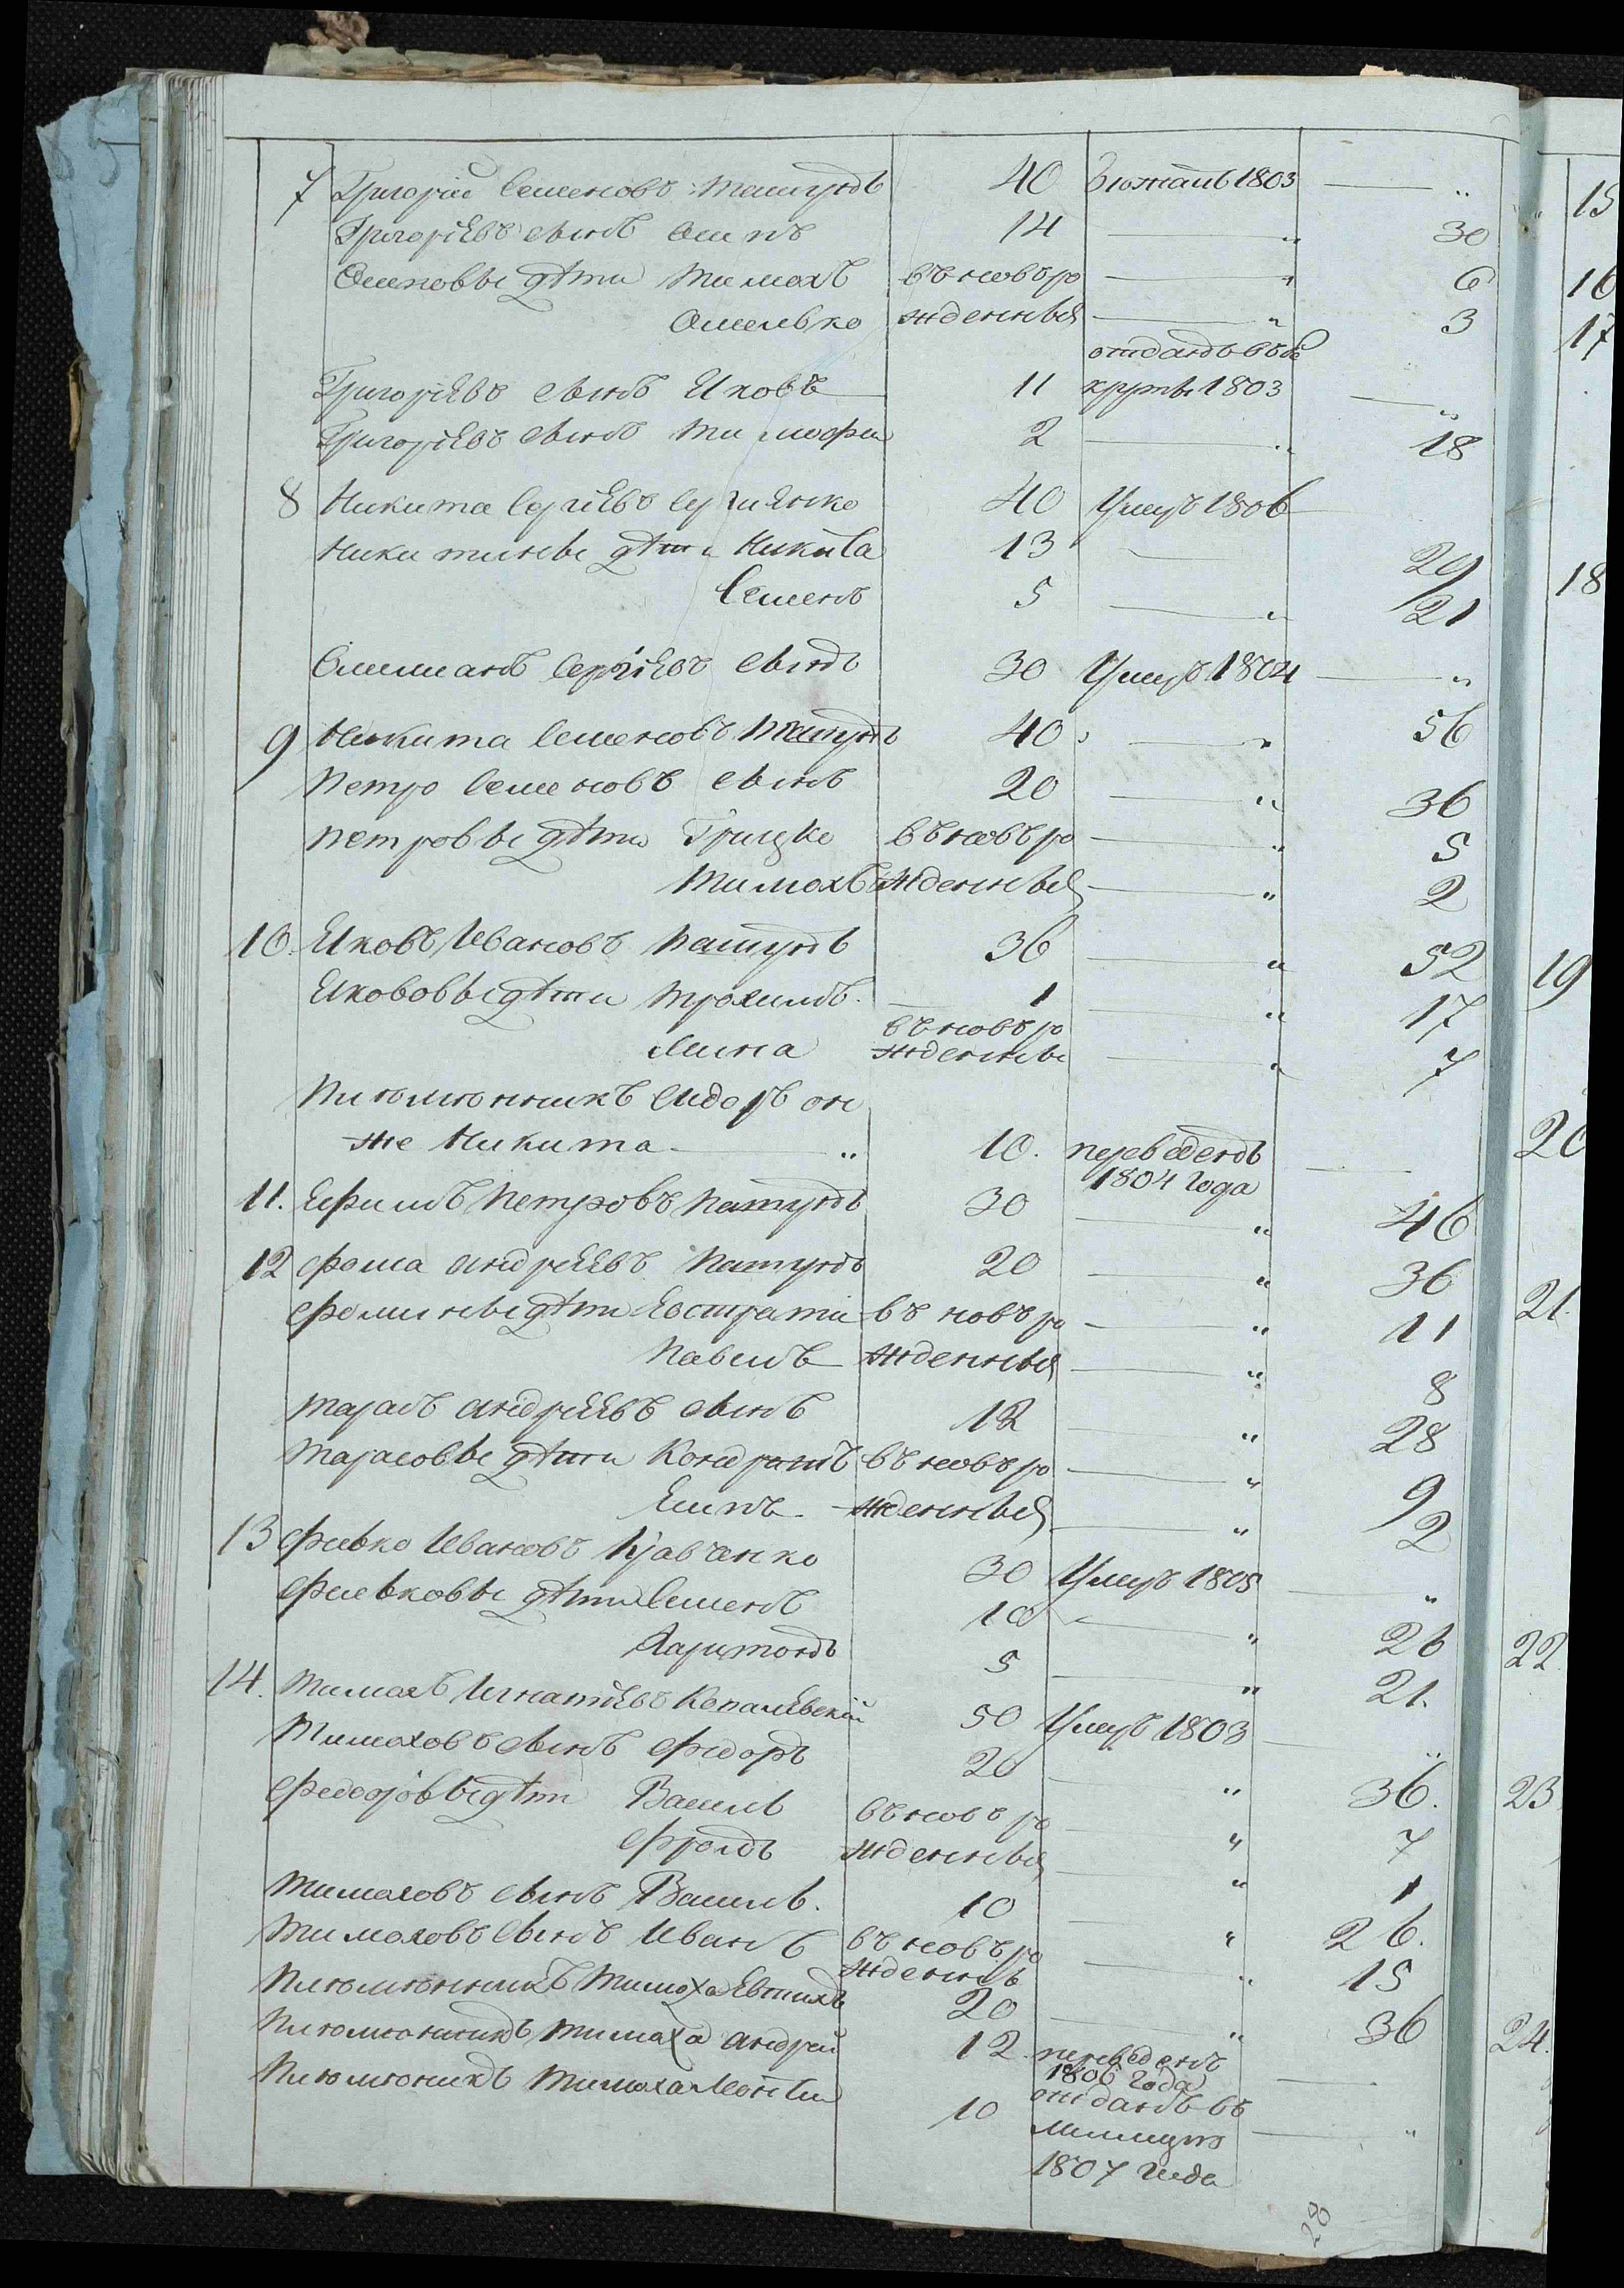 7 Григорій Семеновъ Пашунъ 40 1803 — "
Григоріевъ сынъ Осипъ 14 — " 30
Осиповы дѣти Тимохъ въ новъ ро — " 6
Омелько жденныя — " 3
отданъ въ ре
Григоріевъ сынъ Яковъ 11 круты 1803 — "
Григоріевъ сынъ Тимофей 2 — " 18
8 Никита Сергіевъ Сергиенко 40 Умеръ 1806
Никитины дѣти Никита 13 — 29
Семенъ 5 — " 21
Сергіевъ сынъ 30 Умеръ 1804 — "
9 Никита Семеновъ Пашунъ 40 — " 56
Петро Семеновъ сынъ 20 — " 36
Петровы дѣти Грицко въ новъ ро — " 5
Тимохъ жденныя — " 2
10. Яковъ Ивановъ Пашунъ 36 — " 52
Яковововы дѣти Трохимъ. 1 — " 17
въ новъ ро
Мина жденны — " 7
Племюнникъ Сидоръ он
же Никита — " 10. переведенъ —
1804 года
11. Ефимъ Петровъ Пашунъ 30 — " 46
12 Фома Андреевъ Пашунъ 20 — " 36
Фомины дѣти Евстратій въ новъ ро — " 11
Павелъ жденныя — " 8
Тарасъ Андреевъ сынъ 12 — " 28
Тарасовы дѣти Кондратъ въ новъ ро — " 9
Есипъ жденныя — " 2
13 Фивко Ивановъ Кравченко 30 Умеръ 1805 — "
Филковы дѣти Семенъ 10 — " 26
Харитонъ 5 — " 21.
14. Тимохъ Игнатіевъ Копалевскій 50 Умеръ 1803 — "
Тимоховъ сынъ Федоръ 20 — " 36.
Федоровы дѣти Василь въ новъ ро — " 7
Фролъ жденныя — " 1
Тимоховъ сынъ Василь. 10 — " 26.
Тимоховъ сынъ Иванъ въ новъ ро — " 15
жденнъ
Племюнникъ Тимоха Евтихъ 20 — " 36
Племюникъ Тимоха Андрей 12 переведенъ —
1806 года
Племюникъ Тимоха 10 отданъ въ — "
милицію
1807 года
28
15
16
17
18
19
20
21.
22.
23.
24.